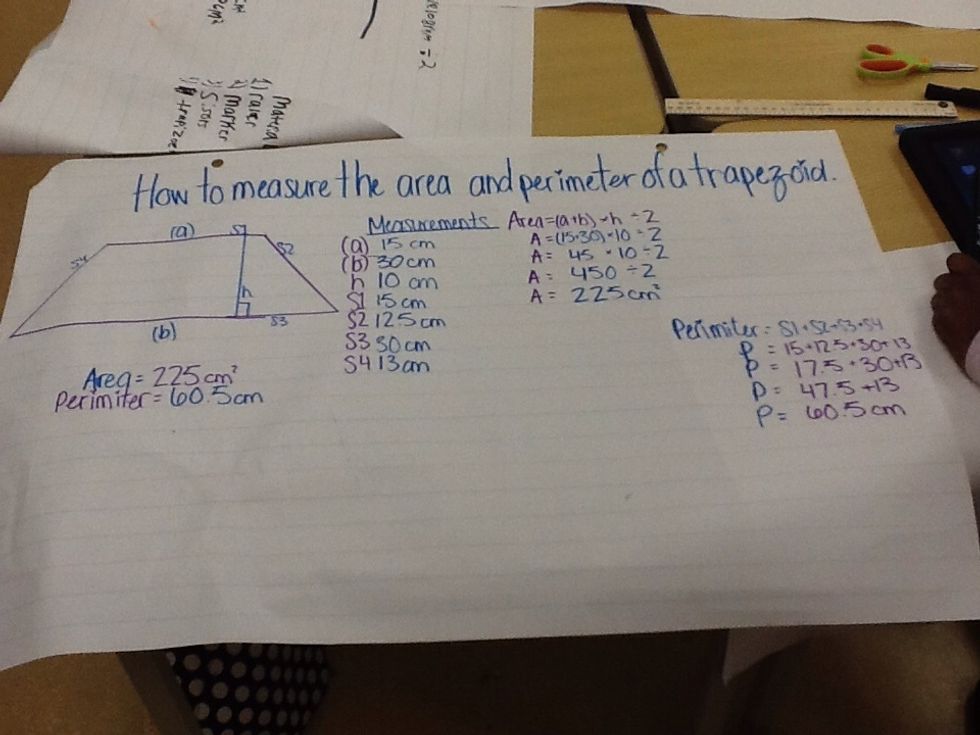 Material
1) ruler
2) Marker
÷2
How to measure the area and perimeter of a trapezoid.
(a)
S1
S2
S4
h
S3
(b)
Area = 225 cm²
Perimiter = 60.5 cm
Measurements
(a) 15 cm
(b) 30 cm
h 10 cm
S1 15 cm
S2 12.5 cm
S3 30 cm
S4 13 cm
Area=(a+b)×h÷2
A=(15+30)×10÷2
A= 45 × 10÷2
A= 450÷2
A= 225cm²
Perimiter = S1+S2+S3+S4
P = 15+12.5+30+13
P = 17.5+30+13
P = 47.5+13
P = 60.5 cm